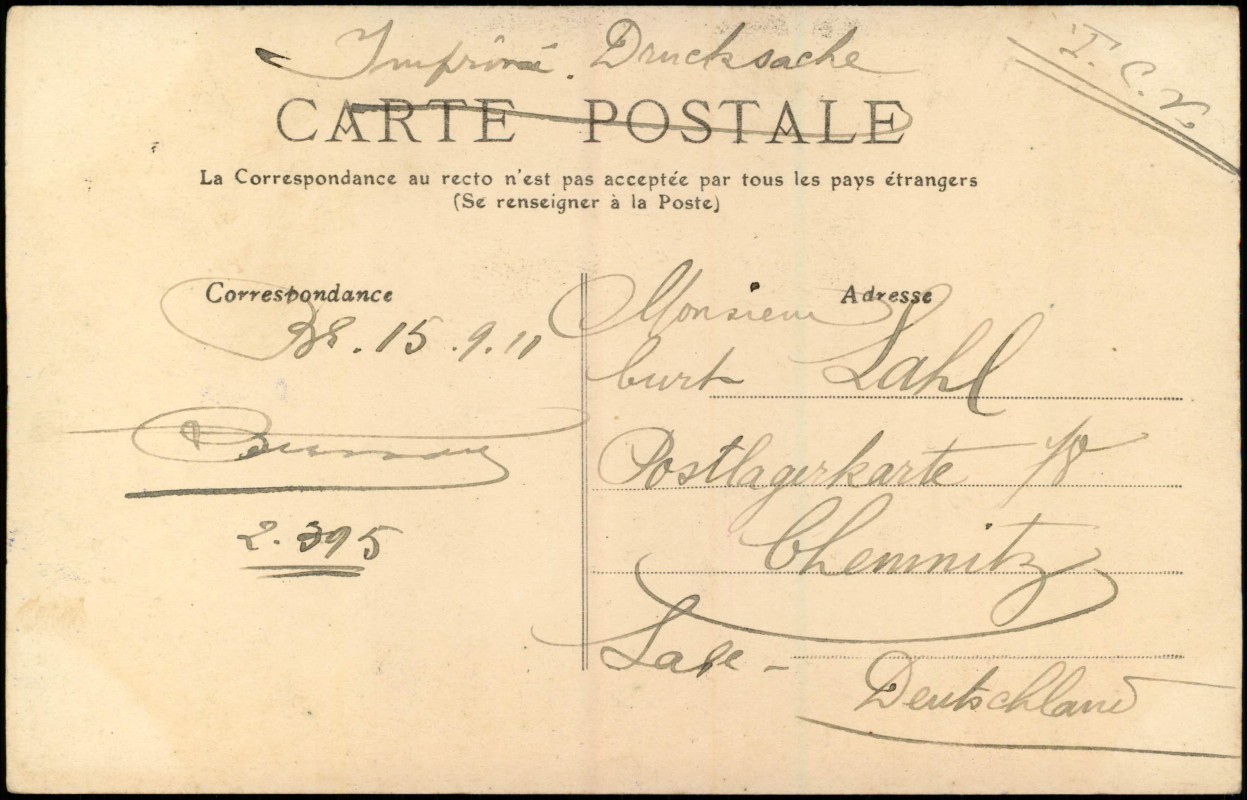 Imprimé. Drucksache
T. C. V.
CARTE POSTALE
La Correspondance au recto n'est pas acceptée par tous les pays étrangers
(Se renseigner à la Poste)
Correspondance
15.9.11
2.395
Adresse
Monsieur
Curt Lahl
Postlagerkarte 18
Chemnitz
Saxe -
Deutschland